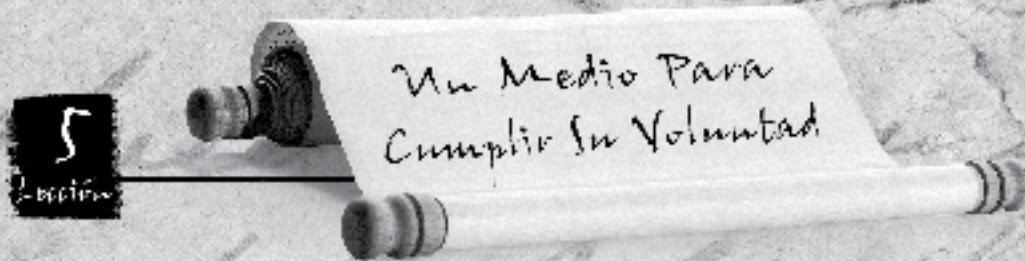 5
Lección
Un Medio Para
Cumplir Su Voluntad